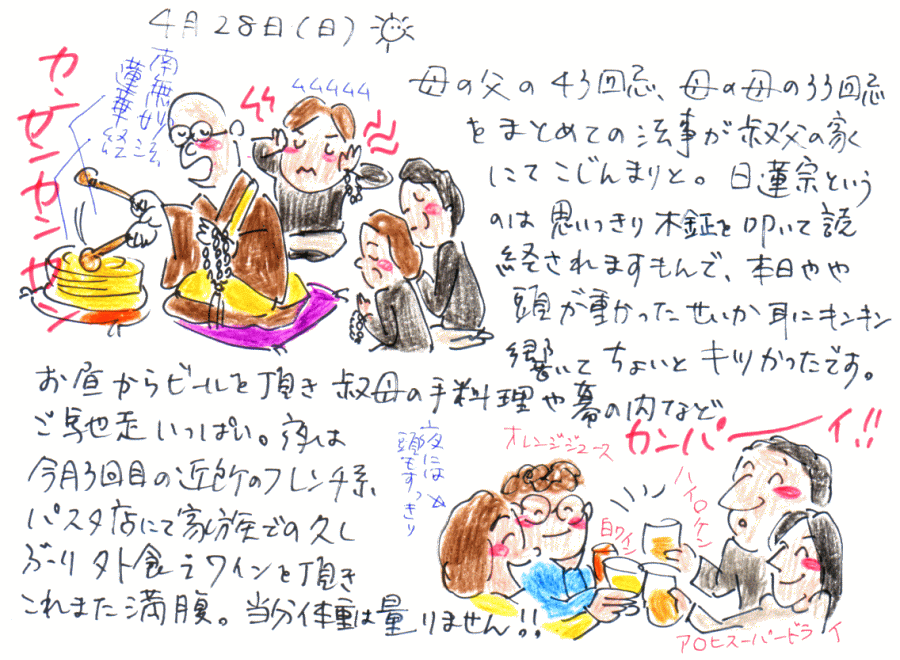 4月28日(日)
カンカンカンカン
南無妙法
蓮華経
母の父の43回忌、母の母の33回忌
をまとめての法事が叔父の家
にてこじんまりと。日蓮宗という
のは思いっきり木鉦を叩いて読
経されますもんで、本日やや
頭が重かったせいか耳にキンキン
響いてちょいとキツかったです。
お昼からビールを頂き叔母の手料理や幕の内など
ご馳走いっぱい。夜は
今月3回目の近所のフレンチ系
パスタ店にて家族での久し
ぶり外食でワインを頂き
これまた満腹。当分体重は量りません!!
夜には
頭もすっきり
カンパーイ!!
オレンジジュース
白ワイン
ハイ
アサヒスーパードライ